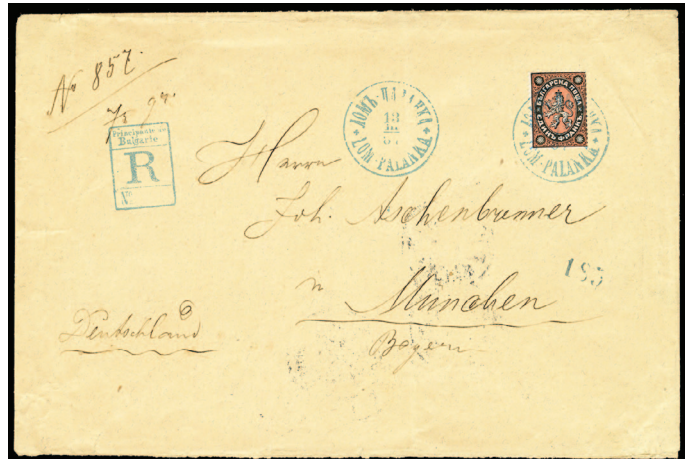 No 857.
Principauté de
Bulgarie
R
No
ЛОМЪ-ПАЛАНКА
13
III
LOM-PALANKA
БЪЛГАРСКА ПОЩА
ЕДИНЪ ФРАНКЪ
LOM-PALANKA
Herrn
Joh. Aschenbrenner
in
München
Bayern
Deutschland
195